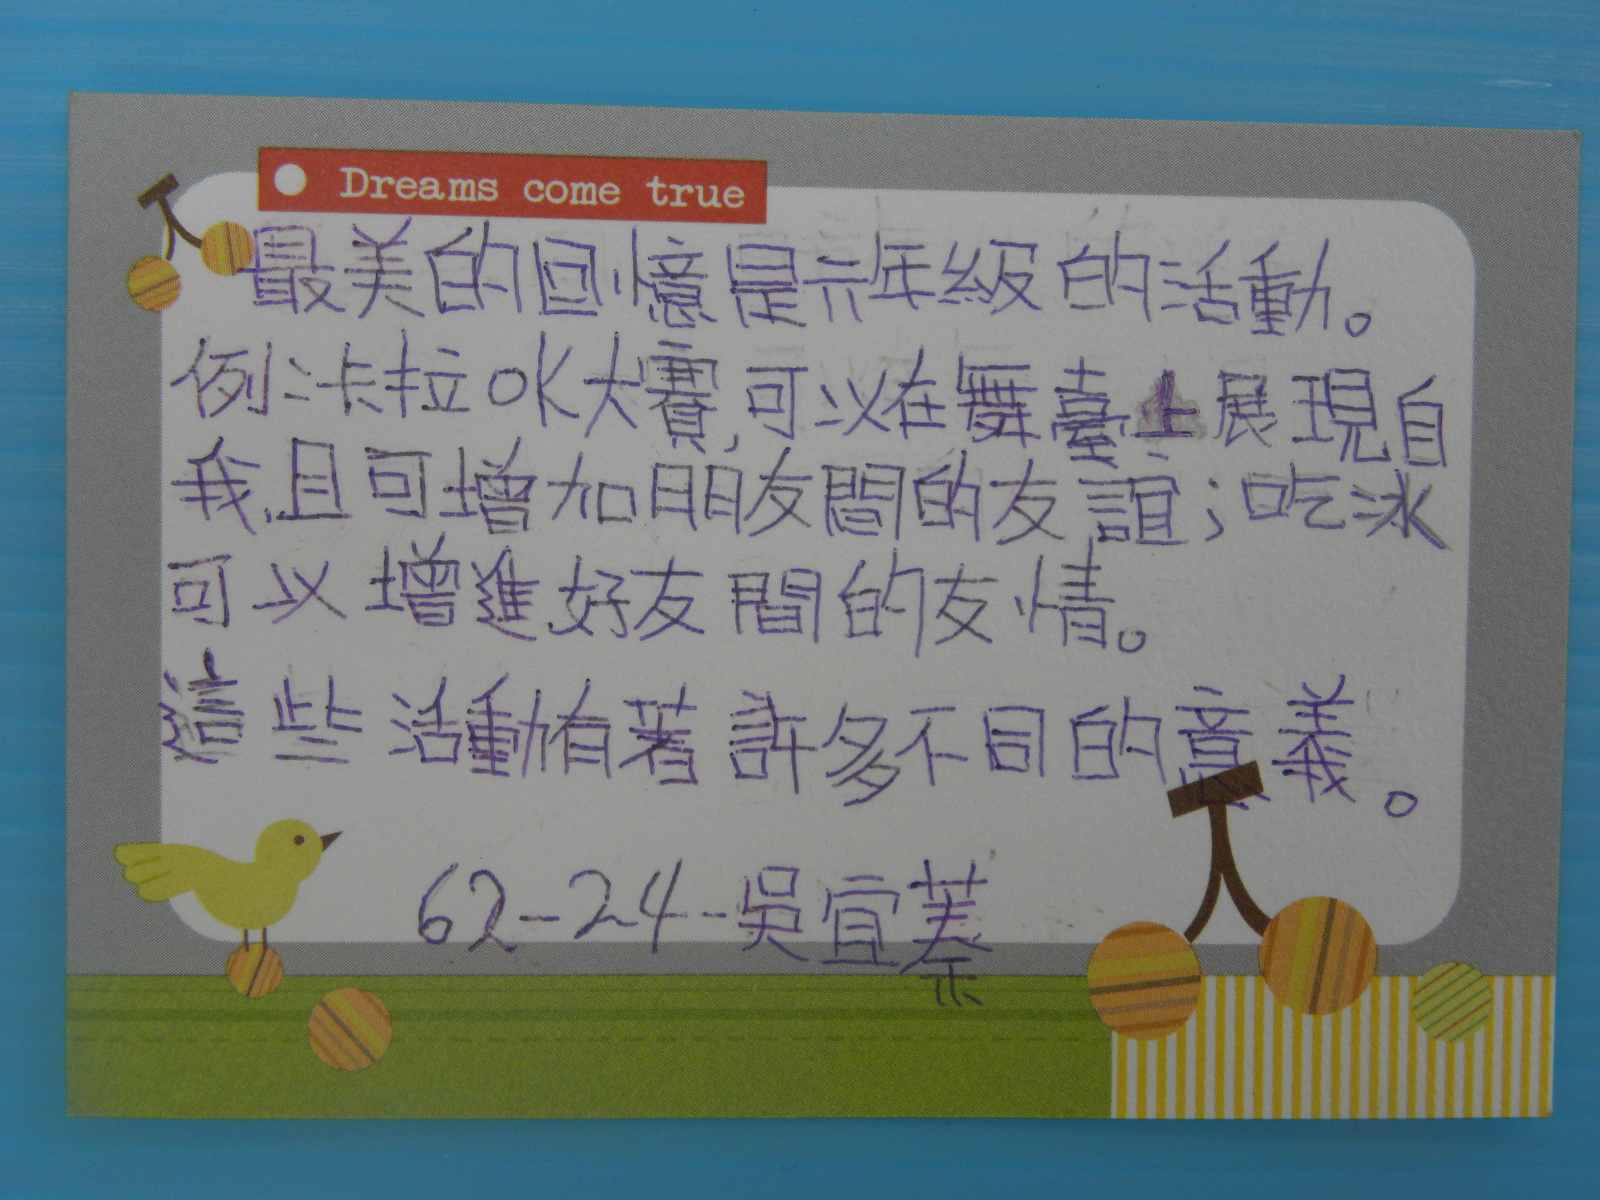 Dreams come true
最美的回憶是六年級的活動。
例:卡拉OK大賽,可以在舞臺上展現自
我,且可增加朋友間的友誼;吃冰
可以增進好友間的友情。
這些活動有著許多不同的意義。
62-24-吳宜蓁